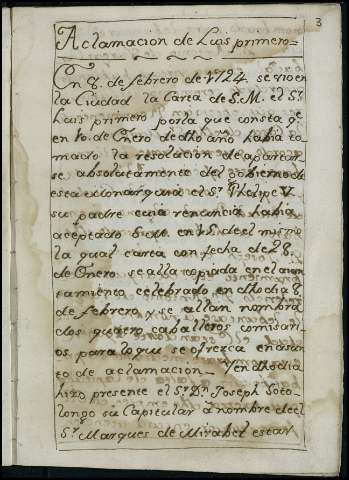 3
Aclamacion de Luis primero=
En 8. de febrero de 1724. se vio en
la Ciudad la Carta de S.M. el Sr.
Luis primero por la que consta qe.
en 10. de Enero de dho año habia to-
mado la resolucion de apartar
se absolutamente del gobierno de
esta Monarquia el Sr. Phelipe V
su padre cuia renuncia habia
aceptado S.M. en 15. del mismo
la qual carta con fecha de 28.
de Enero se alla copiada en el aiun
tamiento celebrado en dho dia 8
de febrero y se allan nombra
dos quatro caballeros comisari
os para lo que se ofrezca en asun
to de aclamacion- Y en dho dia
hizo presente el Sr. Dn. Joseph Soto-
longo su Capitular à nombre del
Sr. Marques de Mirabel estar